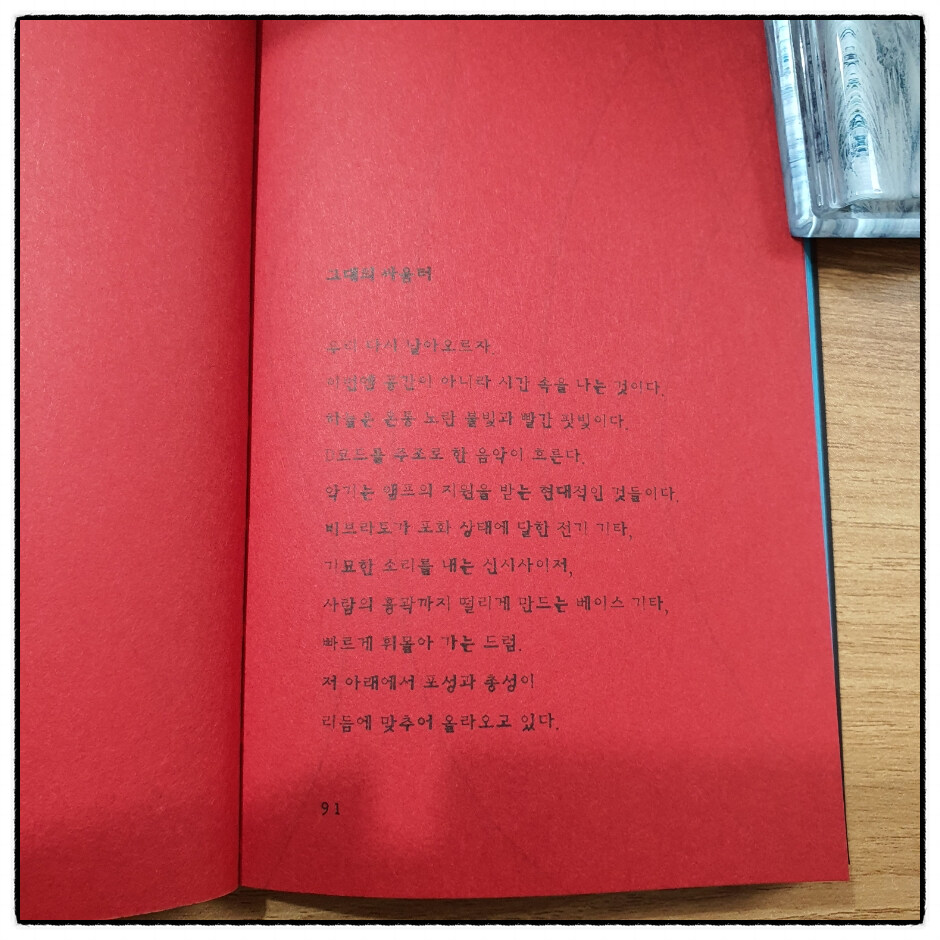 그대의 싸움터
우리 다시 날아오르자.
이번엔 공간이 아니라 시간 속을 나는 것이다.
하늘은 온통 노란 불빛과 빨간 핏빛이다.
D코드를 주조로 한 음악이 흐른다.
악기는 앰프의 지원을 받는 현대적인 것들이다.
비브라토가 포화 상태에 달한 전기 기타,
기묘한 소리를 내는 신시사이저,
사람의 흉곽까지 떨리게 만드는 베이스 기타,
빠르게 휘몰아 가는 드럼.
저 아래에서 포성과 총성이
리듬에 맞추어 올라오고 있다.
91